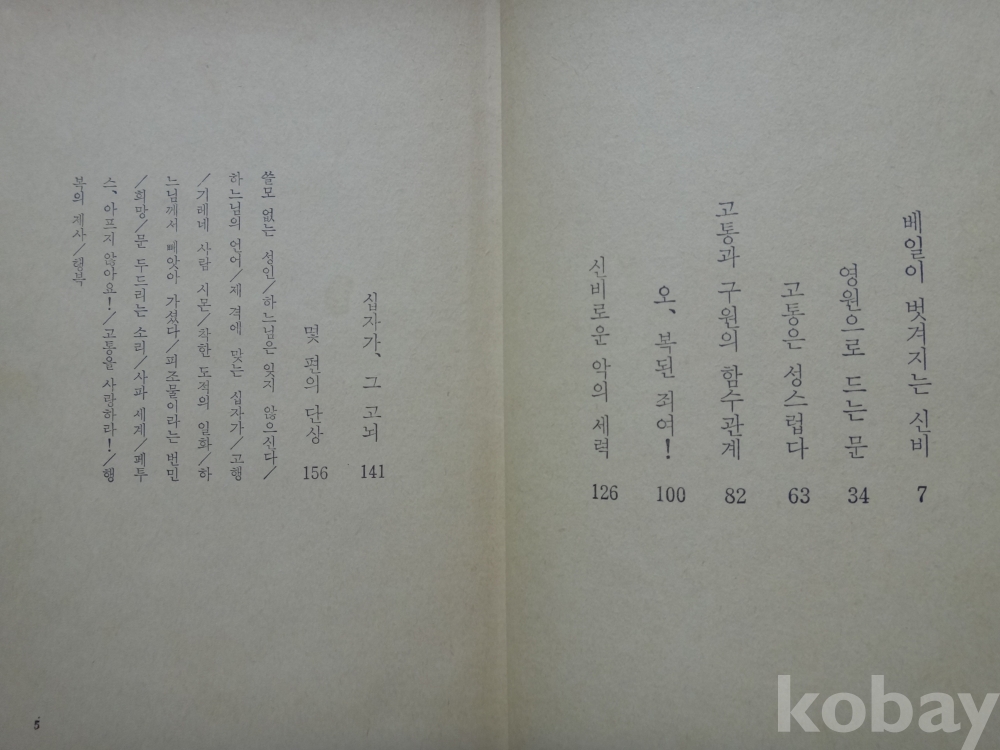 베일이 벗겨지는 신비 7
영원으로 드는 문 34
고통은 성스럽다 63
고통과 구원의 함수관계 82
오, 복된 죄여! 100
신비로운 악의 세력 126
십자가, 그 고뇌 141
몇 편의 단상 156
쓸모 없는 성인/하느님은 잊지 않으신다/
하느님의 언어/제 격에 맞는 십자가/고행
/기레네 사람 시몬/착한 도적의 일화/하
느님께서 빼앗아 가셨다/피조물이라는 번민
/희망/문 두드리는 소리/사파 세계/페투
스, 아프지 않아요!/고통을 사랑하라!/행
복의 제사/행복
5
kobay